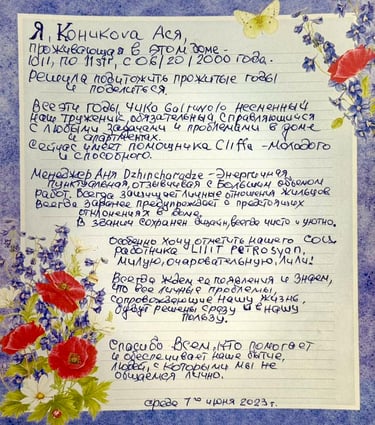 Я, Коникова Ася,
проживающая в этом доме -
1011, по 11 str, с 06/20/2000 года.
Решила подитожить прожитые годы
и поделиться.
Все эти годы Чико несменный
наш труженик, обязательный, справляющийся
с любыми задачами и проблемами в доме
и апартментах.
Сейчас имеет помощника Cliffa - молодого
и способного.
Менеджер Аня Dzhincharadze - Энергичная,
пунктуальная, отзывчивая с большим объемом
работ. Всегда защищает личные отношения жильцов.
Всегда заранее предупреждает о предстоящих
отклонениях в доме.
В здании сохранен дизайн, всегда чисто и уютно.
Особенно хочу отметить нашего соц.
работника Lilit Petrosyan.
милую, очаровательную, Лили!
Всегда ждем ее появления и знаем,
что все личные проблемы,
сопровождающие нашу жизнь,
будут решены сразу и в нашу
пользу.
Спасибо всем, кто помогает
и обеспечивает наше бытие,
людей, с которыми мы не
общаемся лично.
среда 7го июня 2023 г.